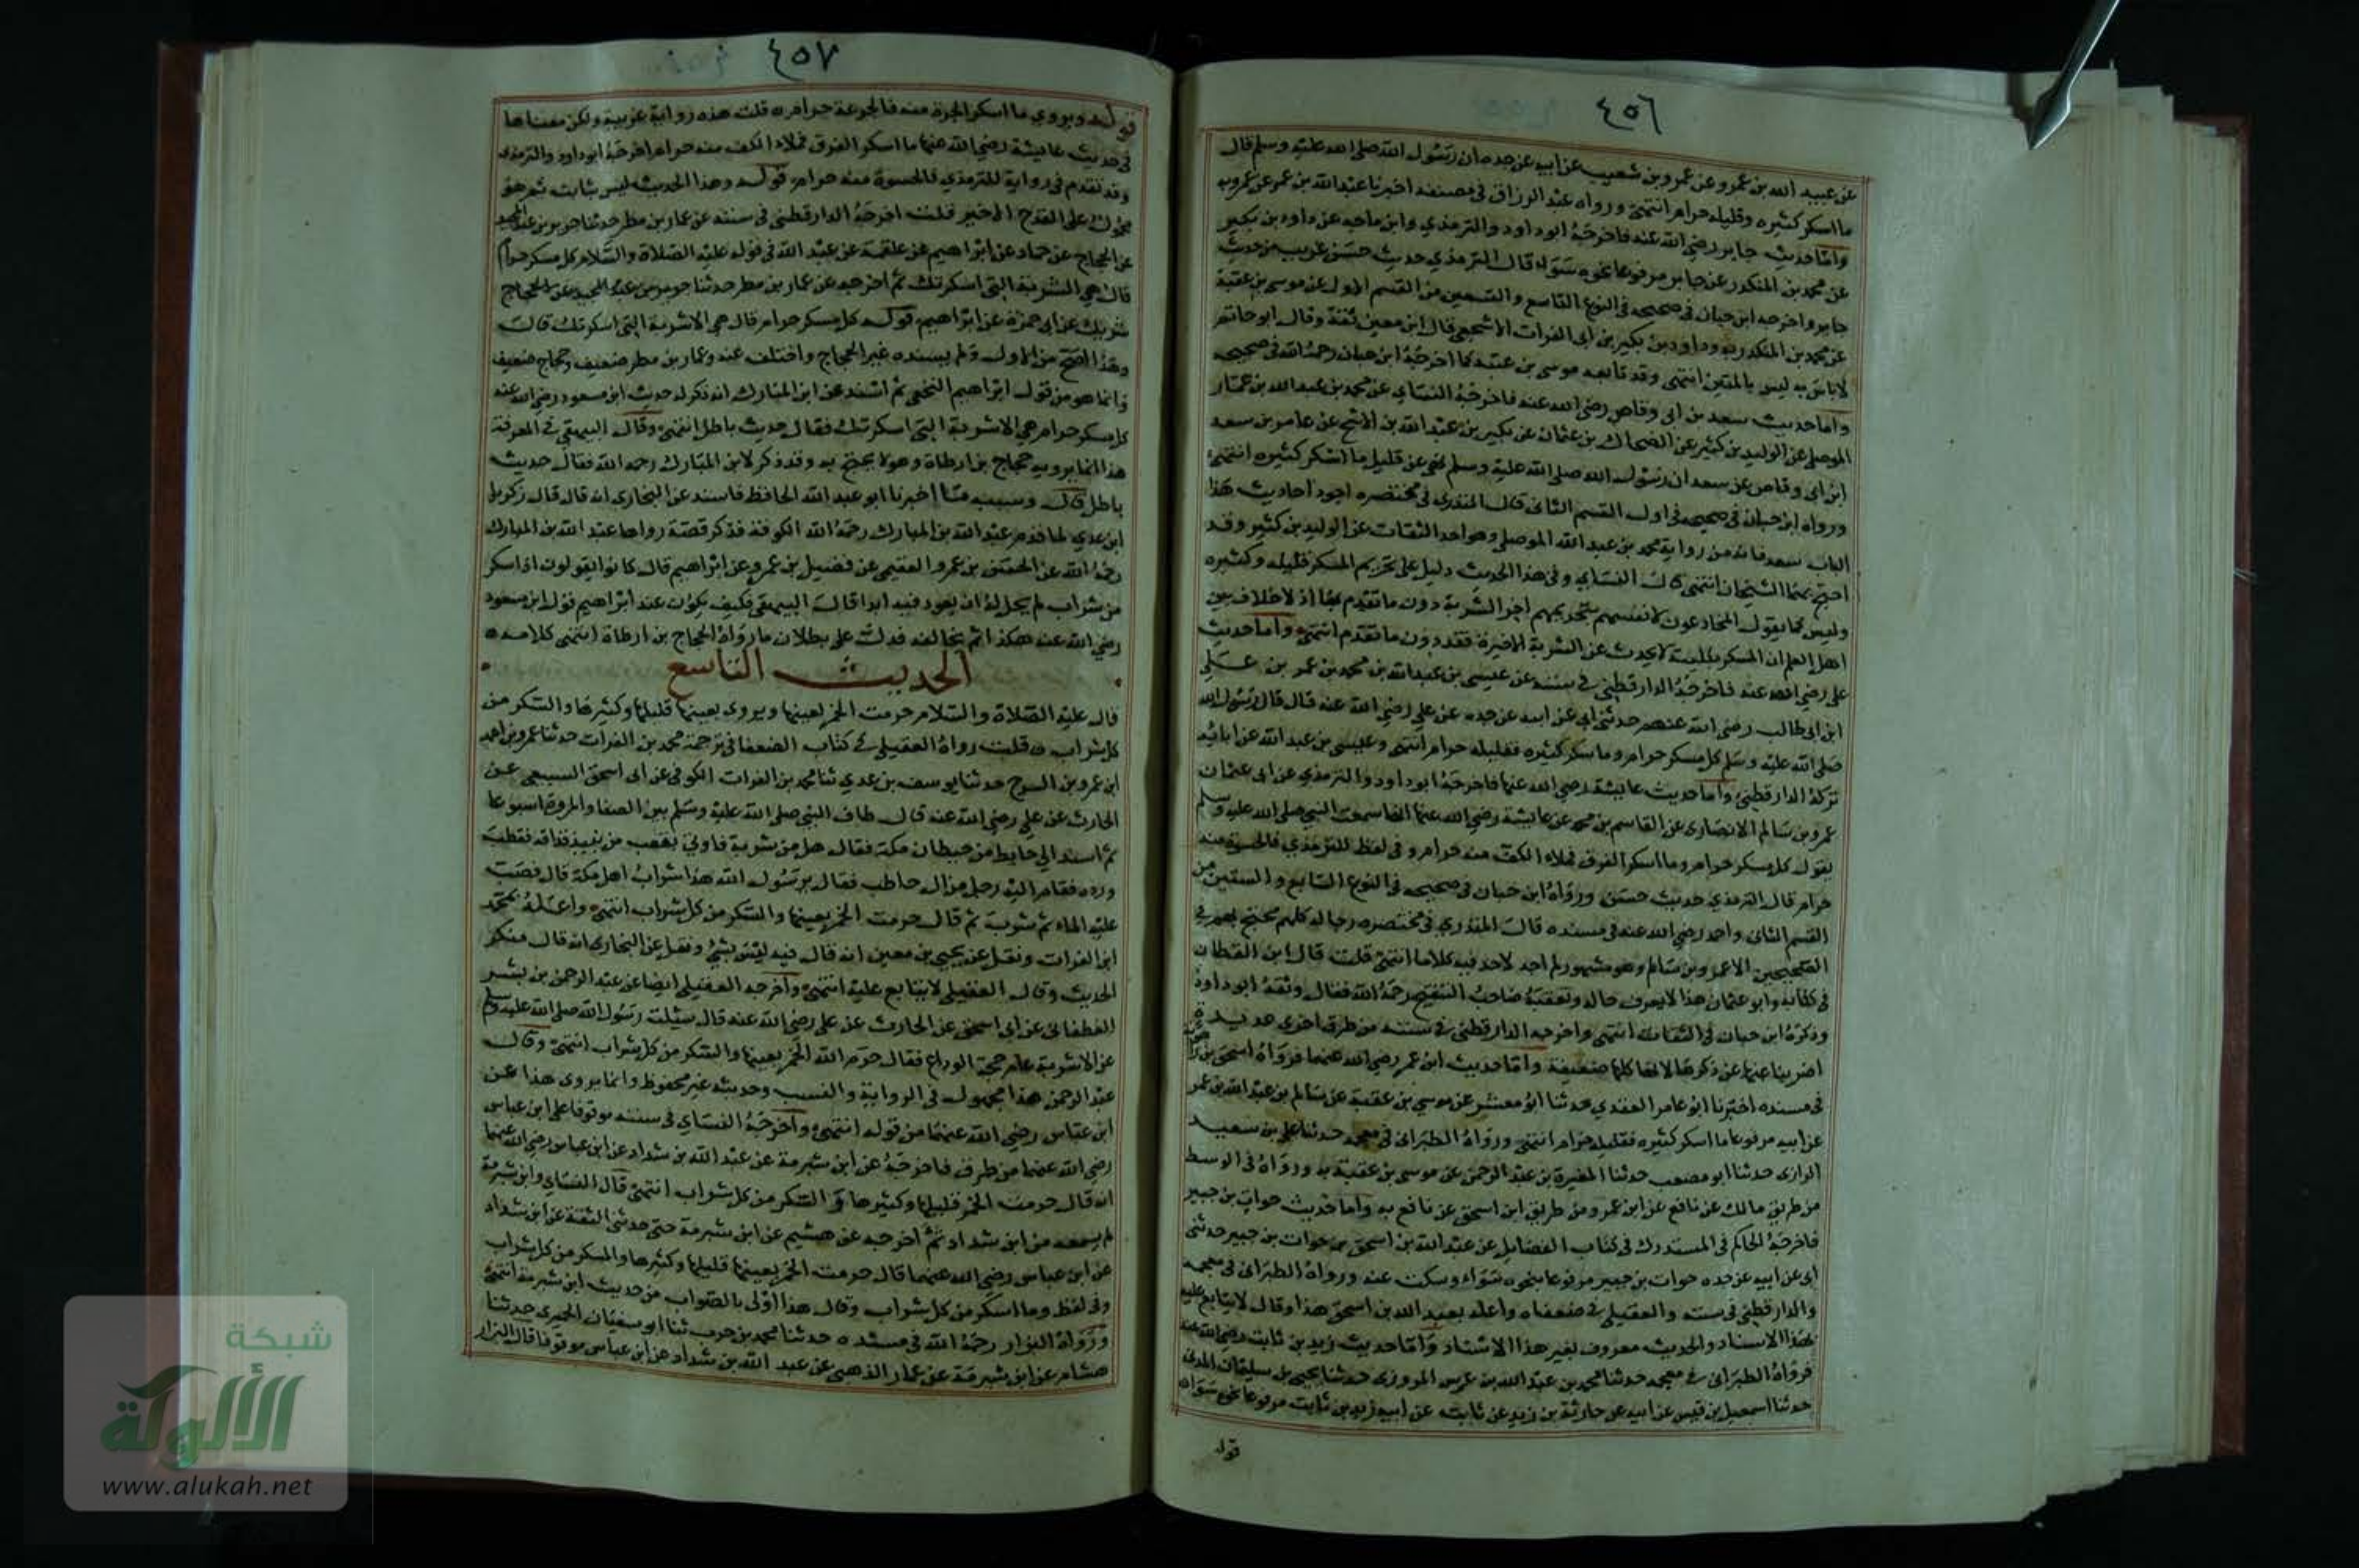 ٤٥٦
عن عبيد الله بن عمرو عن عمرو بن شعيب عن ابيه عن جده ان رسول الله صلى الله عليه وسلم قال
ما اسكر كثيره وقليله حرام انتهى ورواه عبد الرزاق في مصنفه اخبرنا عبد الله بن عمر عن عمرو به
واما حديث جابر رضي الله عنه فاخرجه ابو داود والترمذي وابن ماجه عن داود بن بكير
عن محمد بن المنكدر عن جابر مرفوعا نحوه سواء قال الترمذي حديث حسن غريب من حديث
جابر واخرجه ابن حبان في صحيحه في النوع التاسع والتسعين من القسم الاول عن موسى بن عقبة
عن محمد بن المنكدر به وداود بن بكير بن ابي الفرات الاشجعي قال ابن معين ثقة وقال ابو حاتم
لا باس به ليس بالمتين انتهى وقد تابعه موسى بن عقبة كما اخرجه ابن حبان رحمه الله في صحيحه
واما حديث سعد بن ابي وقاص رضي الله عنه فاخرجه النساي عن محمد بن عبد الله بن عمار
الموصلي عن الوليد بن كثير عن الضحاك بن عثمان عن بكير بن عبد الله بن الاشج عن عامر بن سعد
ابن ابي وقاص عن سعد ان رسول الله صلى الله عليه وسلم نهى عن قليل ما اسكر كثيره انتهى
ورواه ابن حبان في صحيحه في اول القسم الثاني قال المنذري في مختصره اجود احاديث هذا
الباب سعد فانه من رواية محمد بن عبد الله الموصلي وهو احد الثقات عن الوليد بن كثير وقد
احتج بهما الشيخان انتهى قال النساي وفي هذا الحديث دليل على تحريم المسكر قليله وكثيره
وليس كما يقول المخادعون لانفسهم بتحريمهم اخر الشربة دون ما تقدم لها اذ لا خلاف بين
اهل العلم ان المسكر بكليته لا يحدث عن الشربة الاخيرة فقد دون ما تقدم انتهى واما حديث
علي رضي الله عنه فاخرجه الدارقطني في سننه عن عيسى بن عبد الله بن محمد بن عمر بن علي
ابن ابي طالب رضي الله عنهم حدثني ابي عن ابيه عن جده عن علي رضي الله عنه قال قال رسول الله
صلى الله عليه وسلم كل مسكر حرام وما سكر كثيره فقليله حرام انتهى وعيسى بن عبد الله عن ابائه
تركه الدارقطني واما حديث عايشة رضي الله عنها فاخرجه ابو داود والترمذي عن ابي عثمان
عمرو بن سالم الانصاري عن القاسم بن محمد عن عايشة رضي الله عنها انها سمعت النبي صلى الله عليه وسلم
يقول كل مسكر حرام وما اسكر الفرق فملاء الكف منه حرام وفي لفظ للترمذي فالحسوة منه
حرام قال الترمذي حديث حسن ورواه ابن حبان في صحيحه في النوع السابع والستين من
القسم الثاني واحمد رضي الله عنه في مسنده قال المنذري في مختصره رجاله كلهم محتج بهم في
الصحيحين الا عمرو بن سالم وهو مشهور لم اجد لاحد فيه كلاما انتهى قلت قال ابن القطان
في كتابه وابو عثمان هذا لا يعرف حاله وتعقبه صاحب التنقيح رحمه الله فقال وثقه ابو داود
وذكره ابن حبان في الثقات انتهى واخرجه الدارقطني في سننه من طرق اخرى عديدة
اضربنا عنها عن ذكرها لانها كلها ضعيفة واما حديث ابن عمر رضي الله عنهما فرواه اسحق بن راهويه
في مسنده اخبرنا ابو عامر العقدي حدثنا ابو معشر عن موسى بن عقبة عن سالم بن عبد الله بن عمر
عن ابيه مرفوعا ما اسكر كثيره فقليله حرام انتهى ورواه الطبراني في معجمه حدثنا علي بن سعيد
الرازي حدثنا ابو مصعب حدثنا المغيرة بن عبد الرحمن عن موسى بن عقبة به ورواه في الوسط
من طريق مالك عن نافع عن ابن عمر ومن طريق ابن اسحق عن نافع به واما حديث خوات بن جبير
فاخرجه الحاكم في المستدرك في كتاب الفضايل عن عبد الله بن اسحق بن خوات بن جبير حدثني
ابي عن ابيه عن جده خوات بن جبير مرفوعا بنحوه سواء وسكت عنه ورواه الطبراني في معجمه
والدارقطني في سننه والعقيلي في ضعفاه واعله بعبد الله بن اسحق هذا وقال لا يتابع عليه
بهذا الاسناد والحديث معروف بغير هذا الاسناد واما حديث زيد بن ثابت رضي الله عنه
فرواه الطبراني في معجمه حدثنا محمد بن عبد الله بن عرس المروزي حدثنا يحيى بن سليمان المدني
حدثنا اسمعيل بن قيس عن ابيه عن خارجة بن زيد عن ثابت عن ابيه زيد بن ثابت مرفوعا نحوه سواء
قوله
٤٥٧
قوله ويروى ما اسكر الجرة منه فالجرعة حرام قلت هذه رواية غريبة ولكن معناها
في حديث عايشة رضي الله عنها ما اسكر الفرق فملاء الكف منه حرام اخرجه ابو داود والترمذي
وقد تقدم في رواية للترمذي فالحسوة منه حرام قوله وهذا الحديث ليس بثابت ثم هو
محمول على القدح الاخير قلت اخرجه الدارقطني في سننه عن عمار بن مطر حدثنا جرير بن عبد الحميد
عن الحجاج عن حماد عن ابراهيم عن علقمة عن عبد الله في قوله عليه الصلاة والسلام كل مسكر حرام
قال هي الشربة التي اسكرتك ثم اخرجه عن عمار بن مطر حدثنا جرير بن عبد الحميد عن الحجاج
شريك عن ابي حمزة عن ابراهيم قوله كل مسكر حرام قال هي الاشربة التي اسكرتك قالت
وهذا اصح من الاول ولم يسنده غير الحجاج واختلف عنه وعمار بن مطر ضعيف وحجاج ضعيف
وانما هو من قول ابراهيم النخعي ثم اسند عن ابن المبارك انه ذكر له حديث ابن مسعود رضي الله عنه
كل مسكر حرام هي الاشربة التي اسكرتك فقال حديث باطل انتهى وقال البيهقي في المعرفة
هذا انما يرويه حجاج بن ارطاة وهو لا يحتج به وقد ذكر لابن المبارك رحمه الله فقال حديث
باطل قال وسببه ما اخبرنا ابو عبد الله الحافظ فاسند عن البخاري انه قال قال زكريا
ابن عدي لما قدم عبد الله بن المبارك رحمه الله الكوفة فذكر قصة رواها عبد الله بن المبارك
رحمه الله عن الحسن بن عمرو الفقيمي عن فضيل بن عمرو عن ابراهيم قال كانوا يقولون اذا سكر
من شراب لم يحل له ان يعود فيه ابدا قال البيهقي فكيف يكون عند ابراهيم قول ابن مسعود
رضي الله عنه هكذا ثم يخالفه فدل على بطلان ما رواه الحجاج بن ارطاة انتهى كلامه
الحديث التاسع
قال عليه الصلاة والسلام حرمت الخمر لعينها ويروى بعينها قليلها وكثيرها والسكر من
كل شراب قلت رواه العقيلي في كتاب الضعفا في ترجمة محمد بن الفرات حدثنا عمرو بن احمد
ابن عمرو بن السرح حدثنا يوسف بن عدي ثنا محمد بن الفرات الكوفي عن ابي اسحق السبيعي عن
الحارث عن علي رضي الله عنه قال طاف النبي صلى الله عليه وسلم بين الصفا والمروة اسبوعا
ثم استند الى حايط من حيطان مكة فقال هل من شربة فاوتي بقعب من نبيذ فذاقه فقطب
ورده فقام اليه رجل من ال حاطب فقال يرسول الله هذا شراب اهل مكة قال فصب
عليه الماء ثم شرب ثم قال حرمت الخمر بعينها والسكر من كل شراب انتهى واعله بمحمد
ابن الفرات ونقل عن يحيى بن معين انه قال فيه ليس بشي ونقل عن البخاري انه قال منكر
الحديث وقال العقيلي لا يتابع عليه انتهى واخرجه العقيلي ايضا عن عبد الرحمن بن بشر
الغطفاني عن ابي اسحق عن الحارث عن علي رضي الله عنه قال سئلت رسول الله صلى الله عليه وسلم
عن الاشربة عام حجة الوداع فقال حرم الله الخمر بعينها والسكر من كل شراب انتهى وقال
عبد الرحمن هذا مجهول في الرواية والنسب وحديثه غير محفوظ وانما يروى هذا عن
ابن عباس رضي الله عنهما من قوله انتهى واخرجه النساي في سننه موقوفا على ابن عباس
رضي الله عنهما من طرق فاخرجه عن ابن شبرمة عن عبد الله بن شداد عن ابن عباس رضي الله عنهما
انه قال حرمت الخمر قليلها وكثيرها والسكر من كل شراب انتهى قال النساي وابن شبرمة
لم يسمعه من ابن شداد ثم اخرجه عن هشيم عن ابن شبرمة حتى حدثني الثقة عن ابن شداد
عن ابن عباس رضي الله عنهما قال حرمت الخمر بعينها قليلها وكثيرها والمسكر من كل شراب
وفي لفظ وما اسكر من كل شراب وقال هذا اولى بالصواب من حديث ابن شبرمة انتهى
ورواه البزار رحمه الله في مسنده حدثنا محمد بن حرب ثنا ابو سفيان الحميري حدثنا
هشام عن ابن شبرمة عن عمار الذهبي عن عبد الله بن شداد عن ابن عباس موقوفا قال البزار
شبكة
الألوكة
www.alukah.net